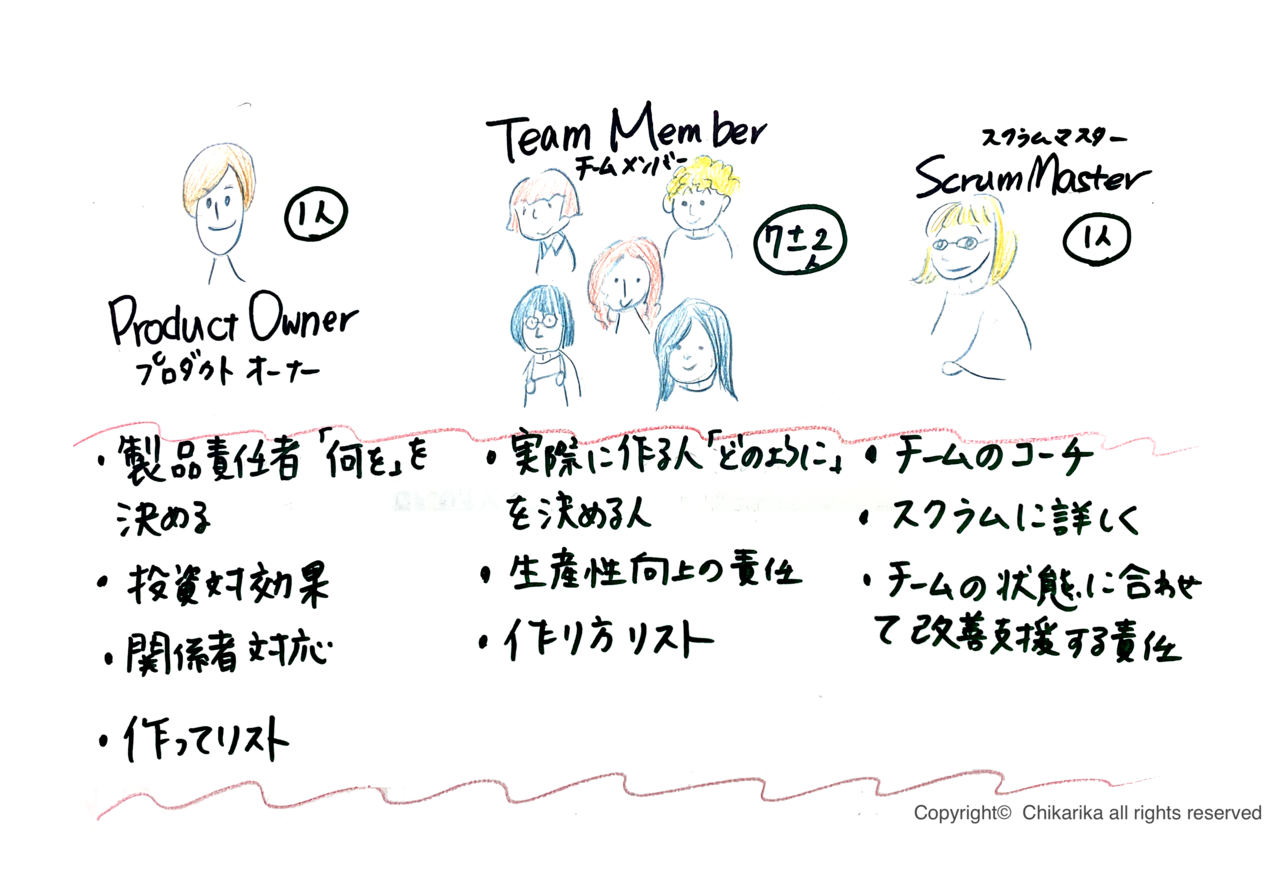 Product Owner
プロダクト オーナー
1人
・製品責任者「何を」を
決める
・投資対効果
・関係者対応
・作ってリスト
Team Member
チームメンバー
7±2
人
・実際に作る人「どのように」
を決める人
・生産性向上の責任
・作り方リスト
スクラムマスター
Scrum Master
1人
・チームのコーチ
・スクラムに詳しく
・チームの状態に合わせ
て改善支援する責任
Copyright© Chikarika all rights reserved